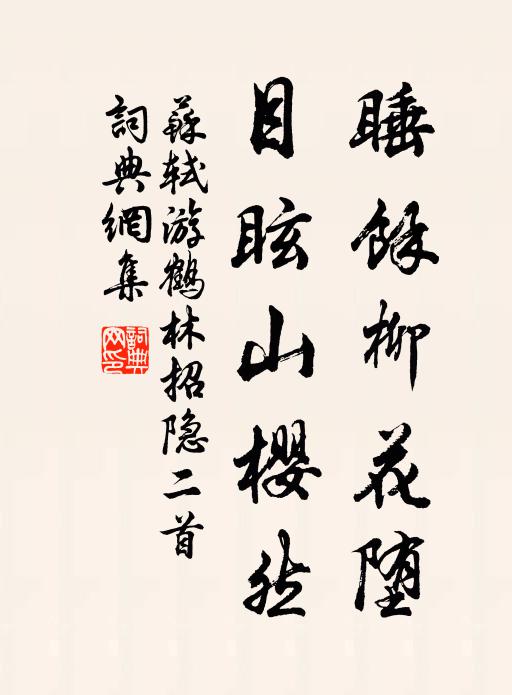 睡餘柳花堕
目眩山櫻然
蘇軾游鶴林招隐二首
詞典網集
詞典网印